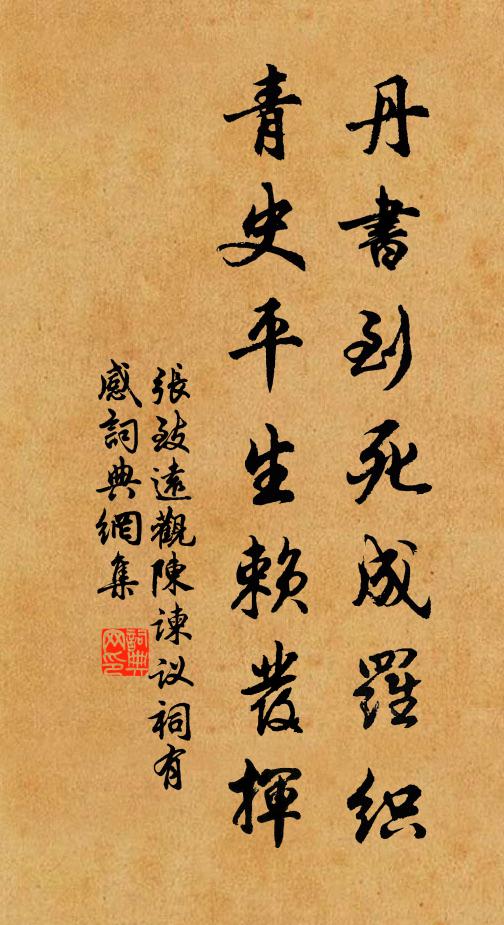 丹書到死成羅织
青史平生赖發揮
張致遠觀陳諫议祠有
感詞典網集
詞典
网印